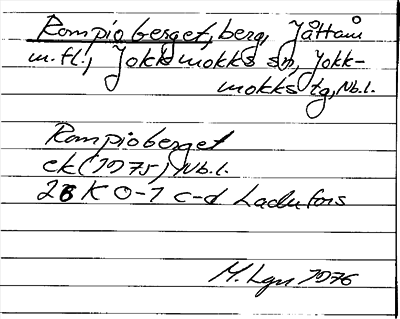 Rompioberget, berg, Jåttam
m.fl., Jokkmokks sn, Jokk-
mokks tg, Nb.l.
Rompioberget
ek (1975) Nb.l.
26 K 0-1 c-d Ladufors
M. Lgn 1976